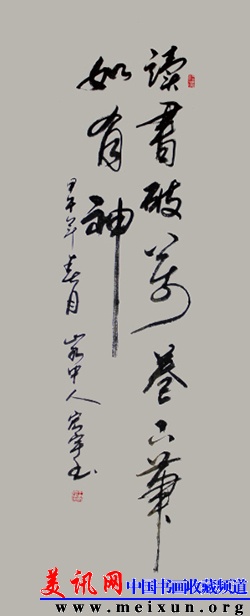 读书破万卷下筆
如有神
甲午年春月 山水中人宏宇书
美讯网中国书画收藏频道
www.meixun.org